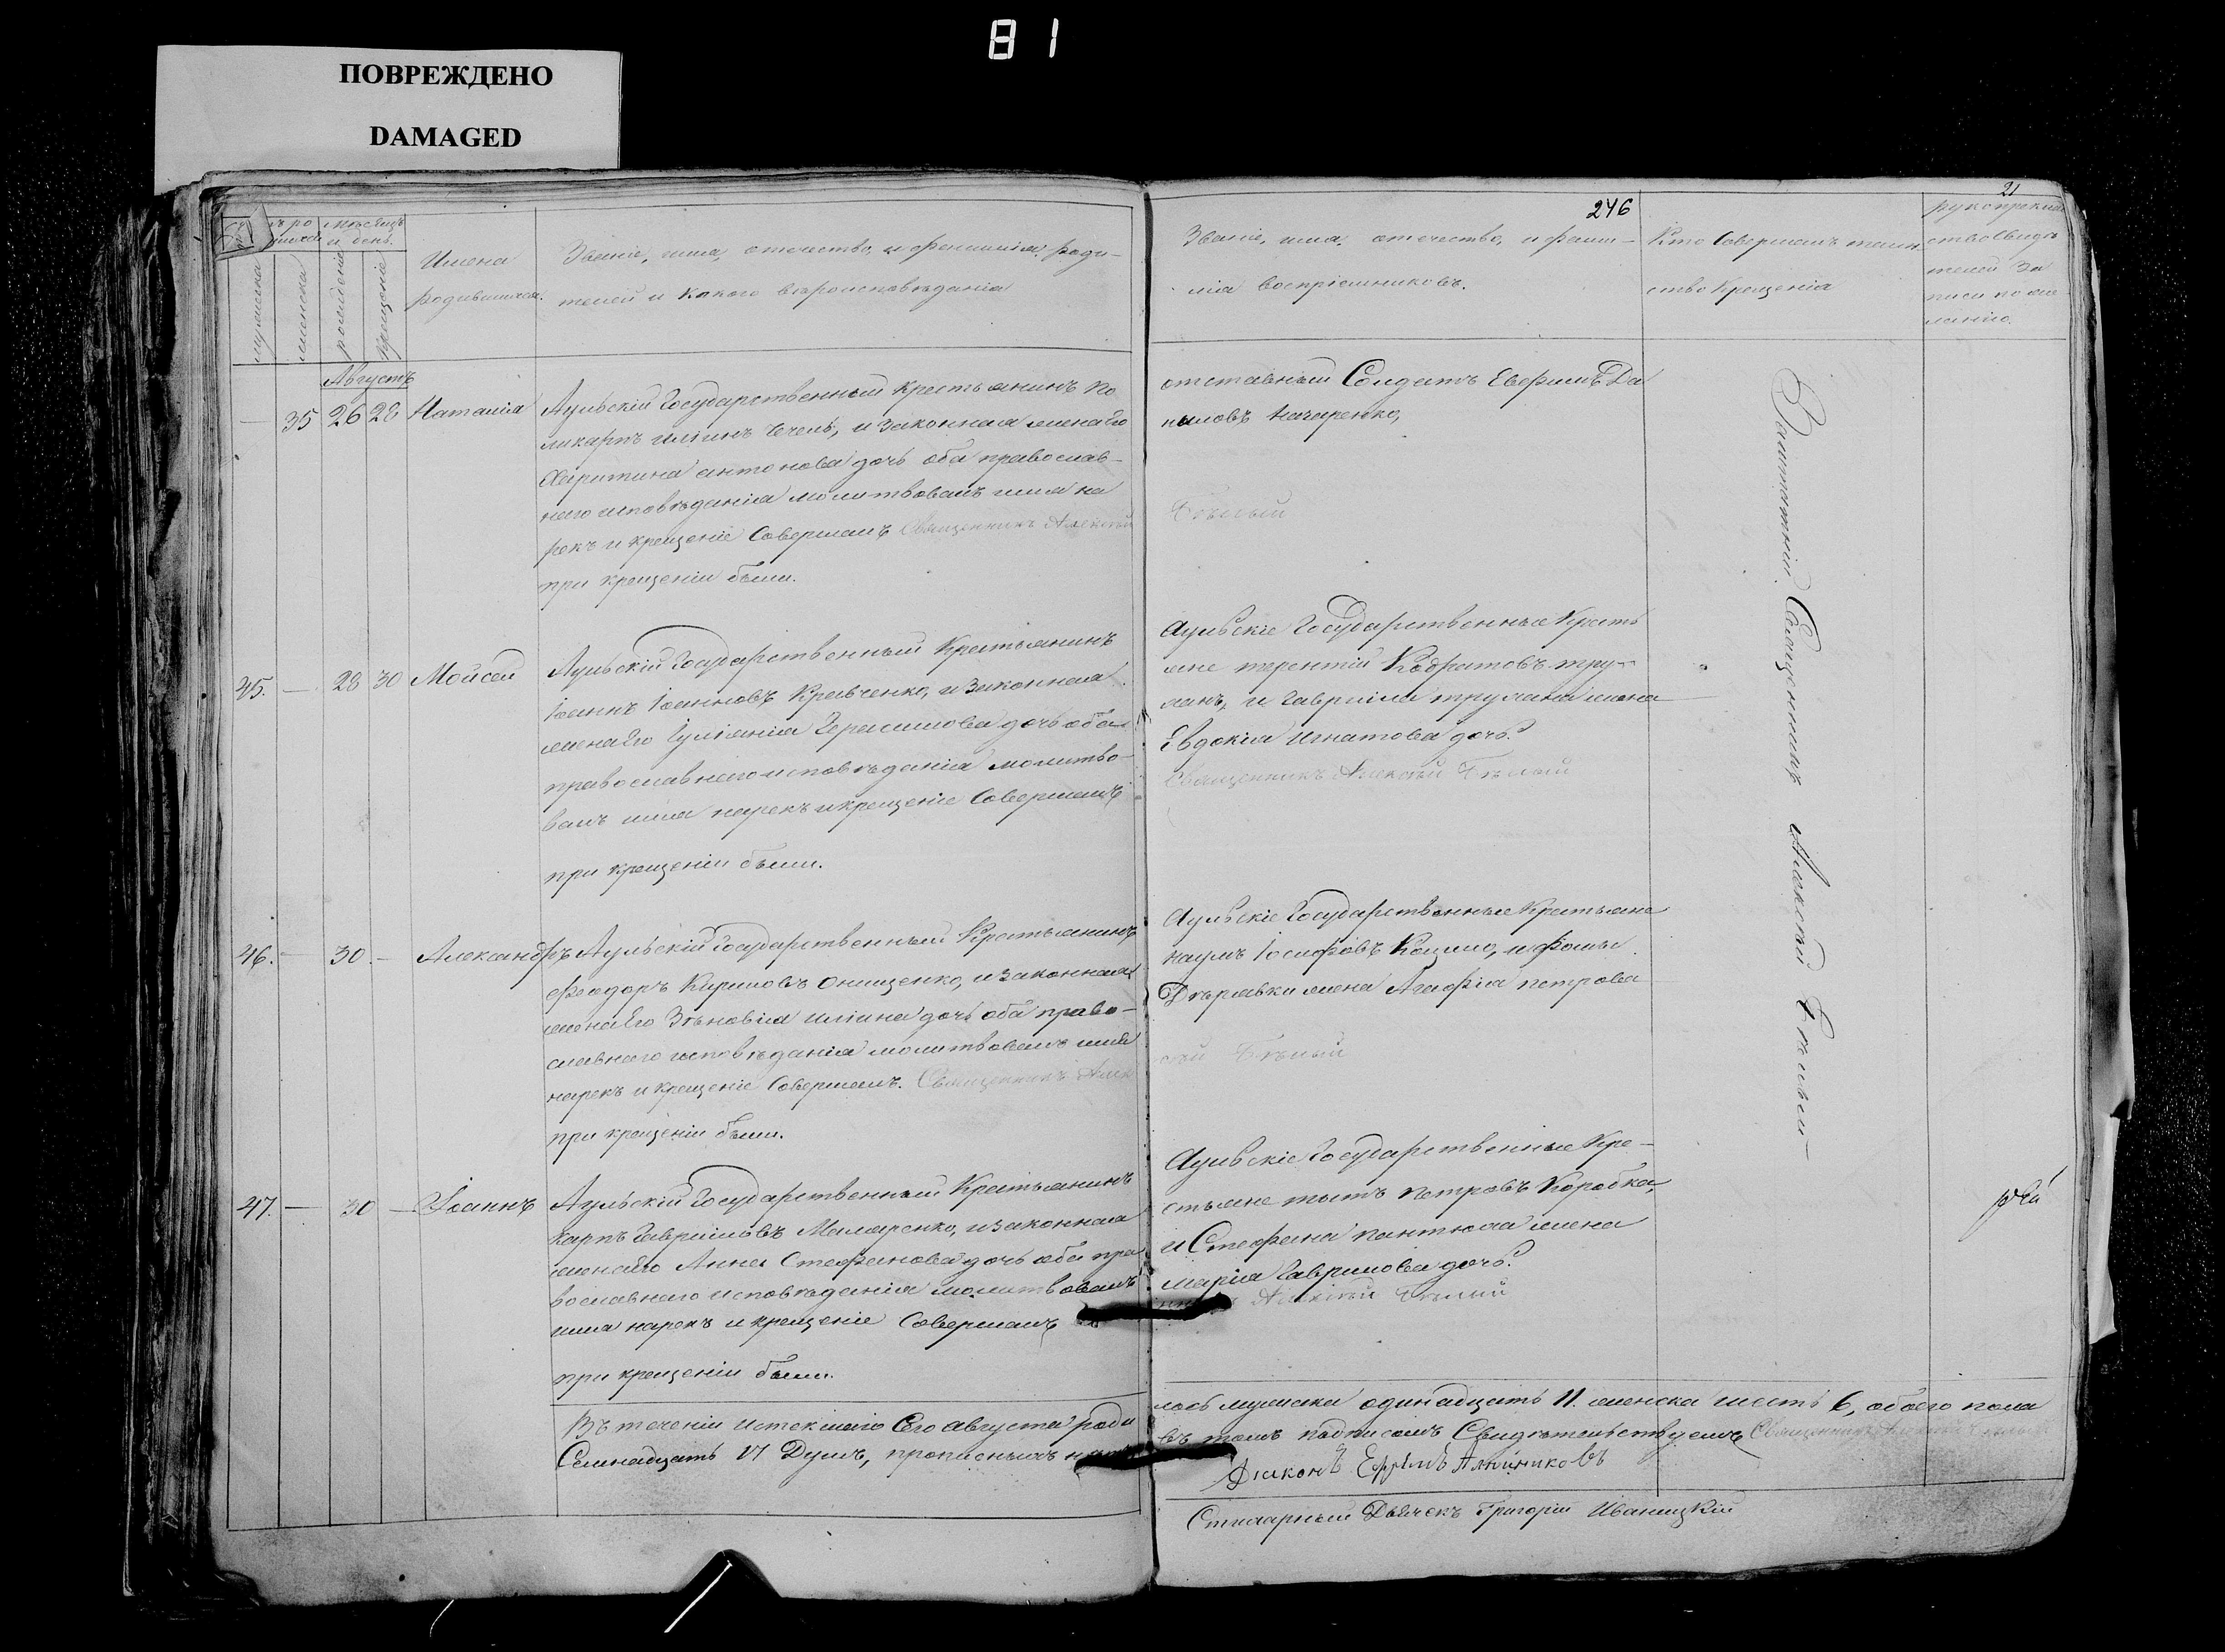 81
ПОВРЕЖДЕНО
DAMAGED
246
21
мѣсяцъ
и день.
мужеска
женска
рожденіе
крещеніе
Имена
родившихся.
Званіе, имя, отечество, и фамилія роди-
телей и какого вѣроисповѣданія
Званіе, имя, отечество, и фами-
лія воспріемниковъ.
Кто Совершалъ таин
ство Крещенія
рукоприклад
ство Свидѣ
телей за
писи по же
ланію.
Августъ
35 26 28 Наталія
Аульскій Государственный крестьянинъ По
ликарпъ Иліинъ Чечель, и законная жена его
Харитина Антонова дочь оба православ-
наго исповѣданія молитвовалъ имя на
рекъ и крещеніе Совершалъ Священникъ Алексѣй
при крещеніи были.
отставный Солдатъ Евфимъ Да
ниловъ Начаренко,
Бѣлый
45. — 28 30 Мойсей
Аульскій Государственный Крестьянинъ
Іоаннъ Іоанновъ Кравченко, и законная
жена его Іуліанія Герасимова дочь оба
православнаго исповѣданія молитво-
валъ имя нарекъ и крещеніе Совершалъ
при крещеніи были.
Аульскіе Государственные Кресть
яне Терентій Кодратовъ Тру-
ханъ, и Гавріила Трухана жена
Евдокія Игнатова дочь.
Священникъ Алексѣй Бѣлый
46. — 30. — Александръ
Аульскій Государственный Крестьянинъ
Феодоръ Кириловъ Онищенко, и законная
жена его Зѣновія Иліина дочь оба право-
славнаго исповѣданія молитвовалъ имя
нарекъ и крещеніе Совершалъ. Священникъ Алек
при крещеніи были.
Аульскіе Государственные Крестьяне
Наумъ Іосифовъ Коцило, и Фомы
Дѣркавки жена Агафія Петрова
сѣй Бѣлый
47. — 30 — Іоаннъ
Аульскій Государственный Крестьянинъ
Карпъ Гавриловъ Маляренко, и законная
жена его Анна Стефанова дочь оба пра
вославнаго исповѣданія молитвовалъ
имя нарекъ и крещеніе Совершалъ
при крещеніи были.
Аульскіе Государственные Кре-
стьяне Титъ Петровъ Коробка,
и Стефана Пантюха жена
Марія Гаврилова дочь.
Алексѣй Бѣлый
Заштатній Священникъ Алексѣй Бѣлый
Въ теченіи истекшаго сего августа роди
лось мужеска одинадцать 11. женска шесть 6, обоего пола
Семнадцать 17 Душъ, прописныхъ нѣтъ
въ томъ подписомъ Свидѣтельствуемъ Священникъ Алексѣй Бѣлый
Діаконъ Ефремъ Алейниковъ
Стихарный Дьячекъ Григорій Иваницкій